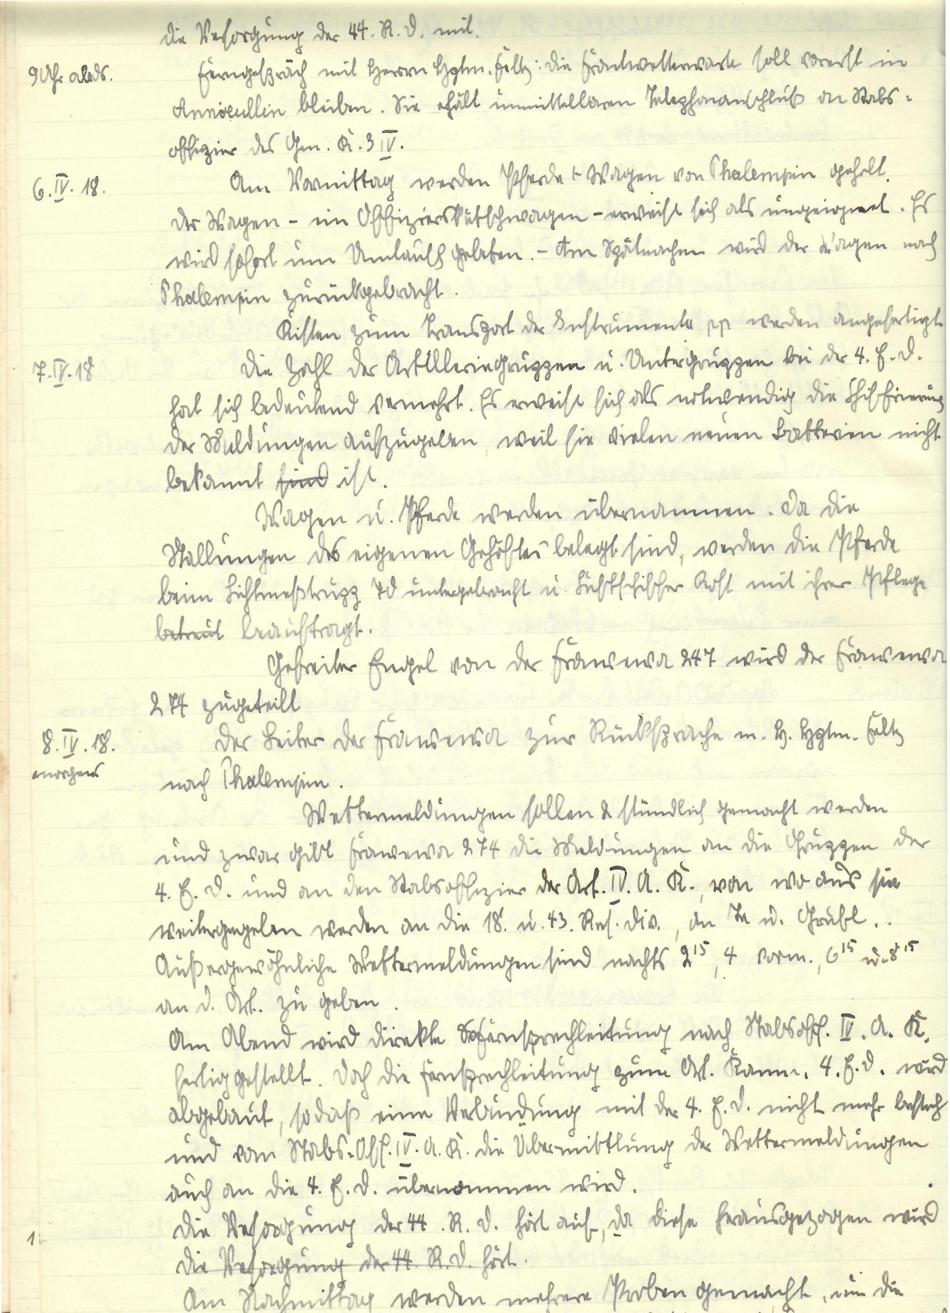 die Versorgung der 44. R. D. mit.
9 Uhr abds. Ferngespräch mit Herrn Hptm. Feltz: die Frontwetterwarte soll vorerst in
Annoeullin bleiben. Sie erhält unmittelbaren Telephonanschluß an Stabs-
offizier des Gen. K. 3 IV.
6. IV. 18. Am Vormittag werden Pferde + Wagen von Phalempin geholt.
Der Wagen – ein Offizierskutschwagen – erweist sich als ungeeignet. Es
wird sofort um Umtausch gebeten. – Am Spätnachm. wird der Wagen nach
Phalempin zurückgebracht.
Kisten zum Transport der Instrumente pp werden angefertigt
7. IV. 18 Die Zahl der Artilleriegruppen u. Untergruppen bei der 4. E. D.
hat sich bedeutend vermehrt. Es erweist sich als notwendig die Chiffrierung
der Meldungen aufzugeben, weil sie vielen neuen Batterien nicht
bekannt sind ist.
Wagen u. Pferde werden übernommen. Da die
Stallungen des eigenen Gehöftes belegt sind, werden die Pferde
beim Lichtmeßtrupp 70 untergebracht u. Luftschiffer Kost mit ihrer Pflege
betreut beauftragt.
Gefreiter Engel von der Frawewa 247 wird der Frawewa
274 zugeteilt
8. IV. 18. Der Leiter der Frawewa zur Rücksprache m. H. Hptm. Feltz
morgens nach Phalempin.
Wettermeldungen sollen 2 stündlich gemacht werden
und zwar gibt Frawewa 274 die Meldungen an die Gruppen der
4. E. D. und an den Stabsoffizier der Art. IV. A. K., von wo aus sie
weitergegeben werden an die 18. u. 43. Res. Div., an u.
Außergewöhnliche Wettermeldungen sind nachts 2¹⁵, 4 vorm., 6¹⁵ u. 8¹⁵
an d. Art. zu geben.
Am Abend wird direkte Fernsprechleitung nach Stabsoff. IV. A. K.
fertig gestellt. Doch die Fernsprechleitung zum Art. Komm. 4. E. D. wird
abgebaut, sodaß eine Verbindung mit der 4. E. D. nicht mehr besteht
und vom Stabs-Off. IV. A. K. die Übermittlung der Wettermeldungen
auch an die 4. E. D. übernommen wird.
Die Versorgung der 44. R. D. hört auf, da diese herausgezogen wird
die Versorgung der 44. R. D. hört.
Am Nachmittag werden mehrere Proben gemacht, um die